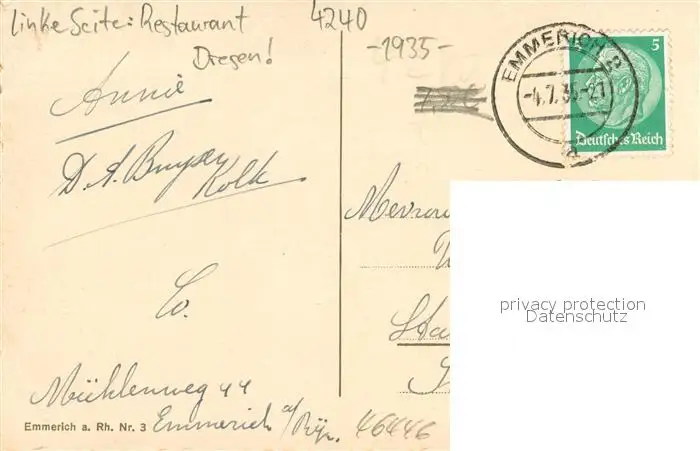 Linke Seite: Restaurant
Dresen!
4240
-1935-
EMMERICH
-4.7.35-21
5
Deutsches Reich
Annie
D. A. Bruyser
Kolk
Co.
Mühlenweg 44
Emmerich a/Rijn.
Emmerich a. Rh. Nr. 3
46446
Mevrou
privacy protection
Datenschutz